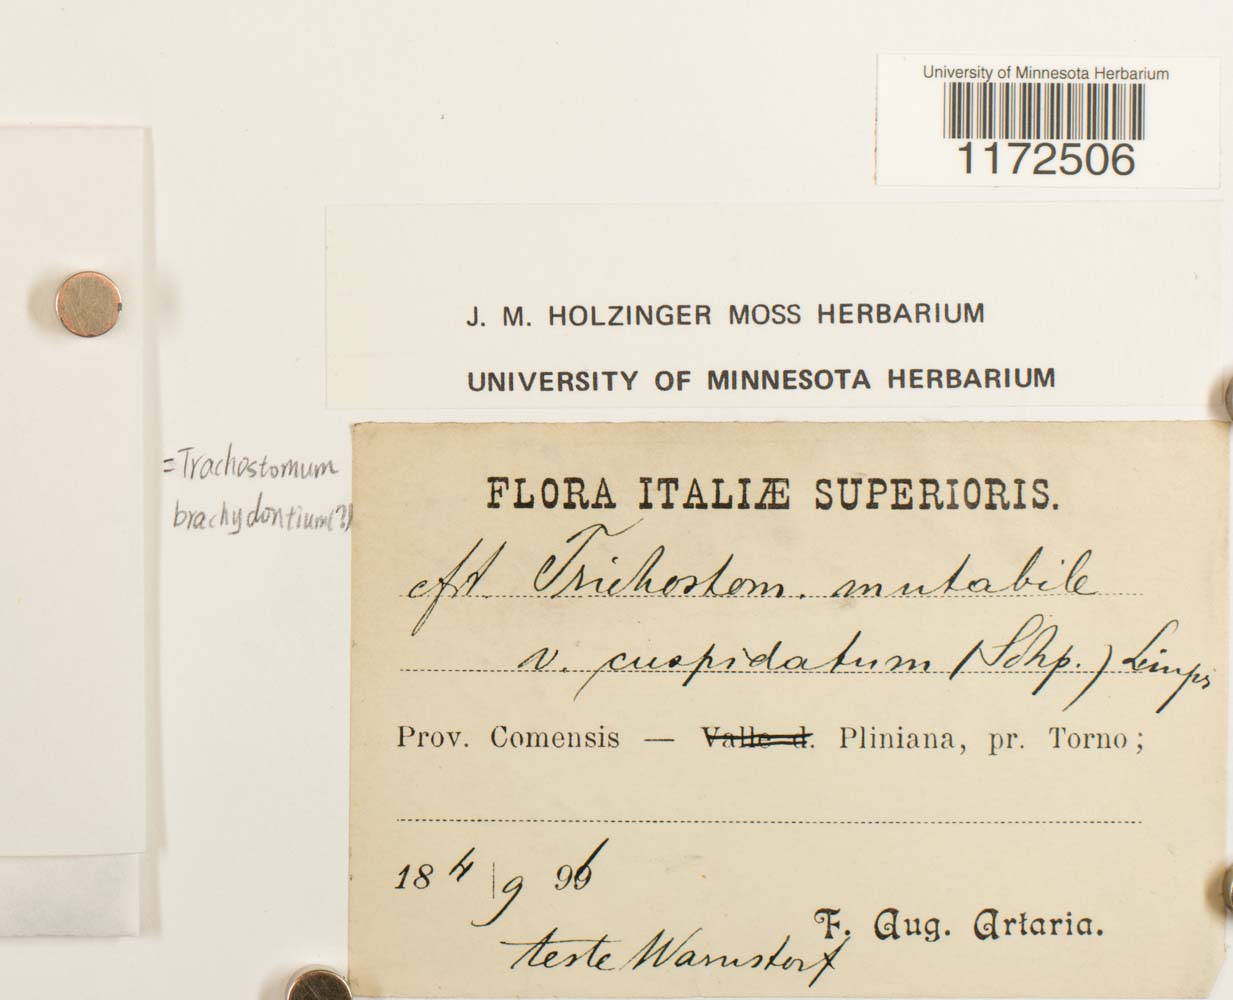 University of Minnesota Herbarium
1172506
J. M. HOLZINGER MOSS HERBARIUM
UNIVERSITY OF MINNESOTA HERBARIUM
=Trachostomum
brachydontium(?)
FLORA ITALIÆ SUPERIORIS.
cfrt. Trichostom. mutabile
v. cuspidatum (Schp.) Limpr
Prov. Comensis — Valle d. Pliniana, pr. Torno;
18 4/9 96
F. Aug. Artaria.
teste Warnstorf